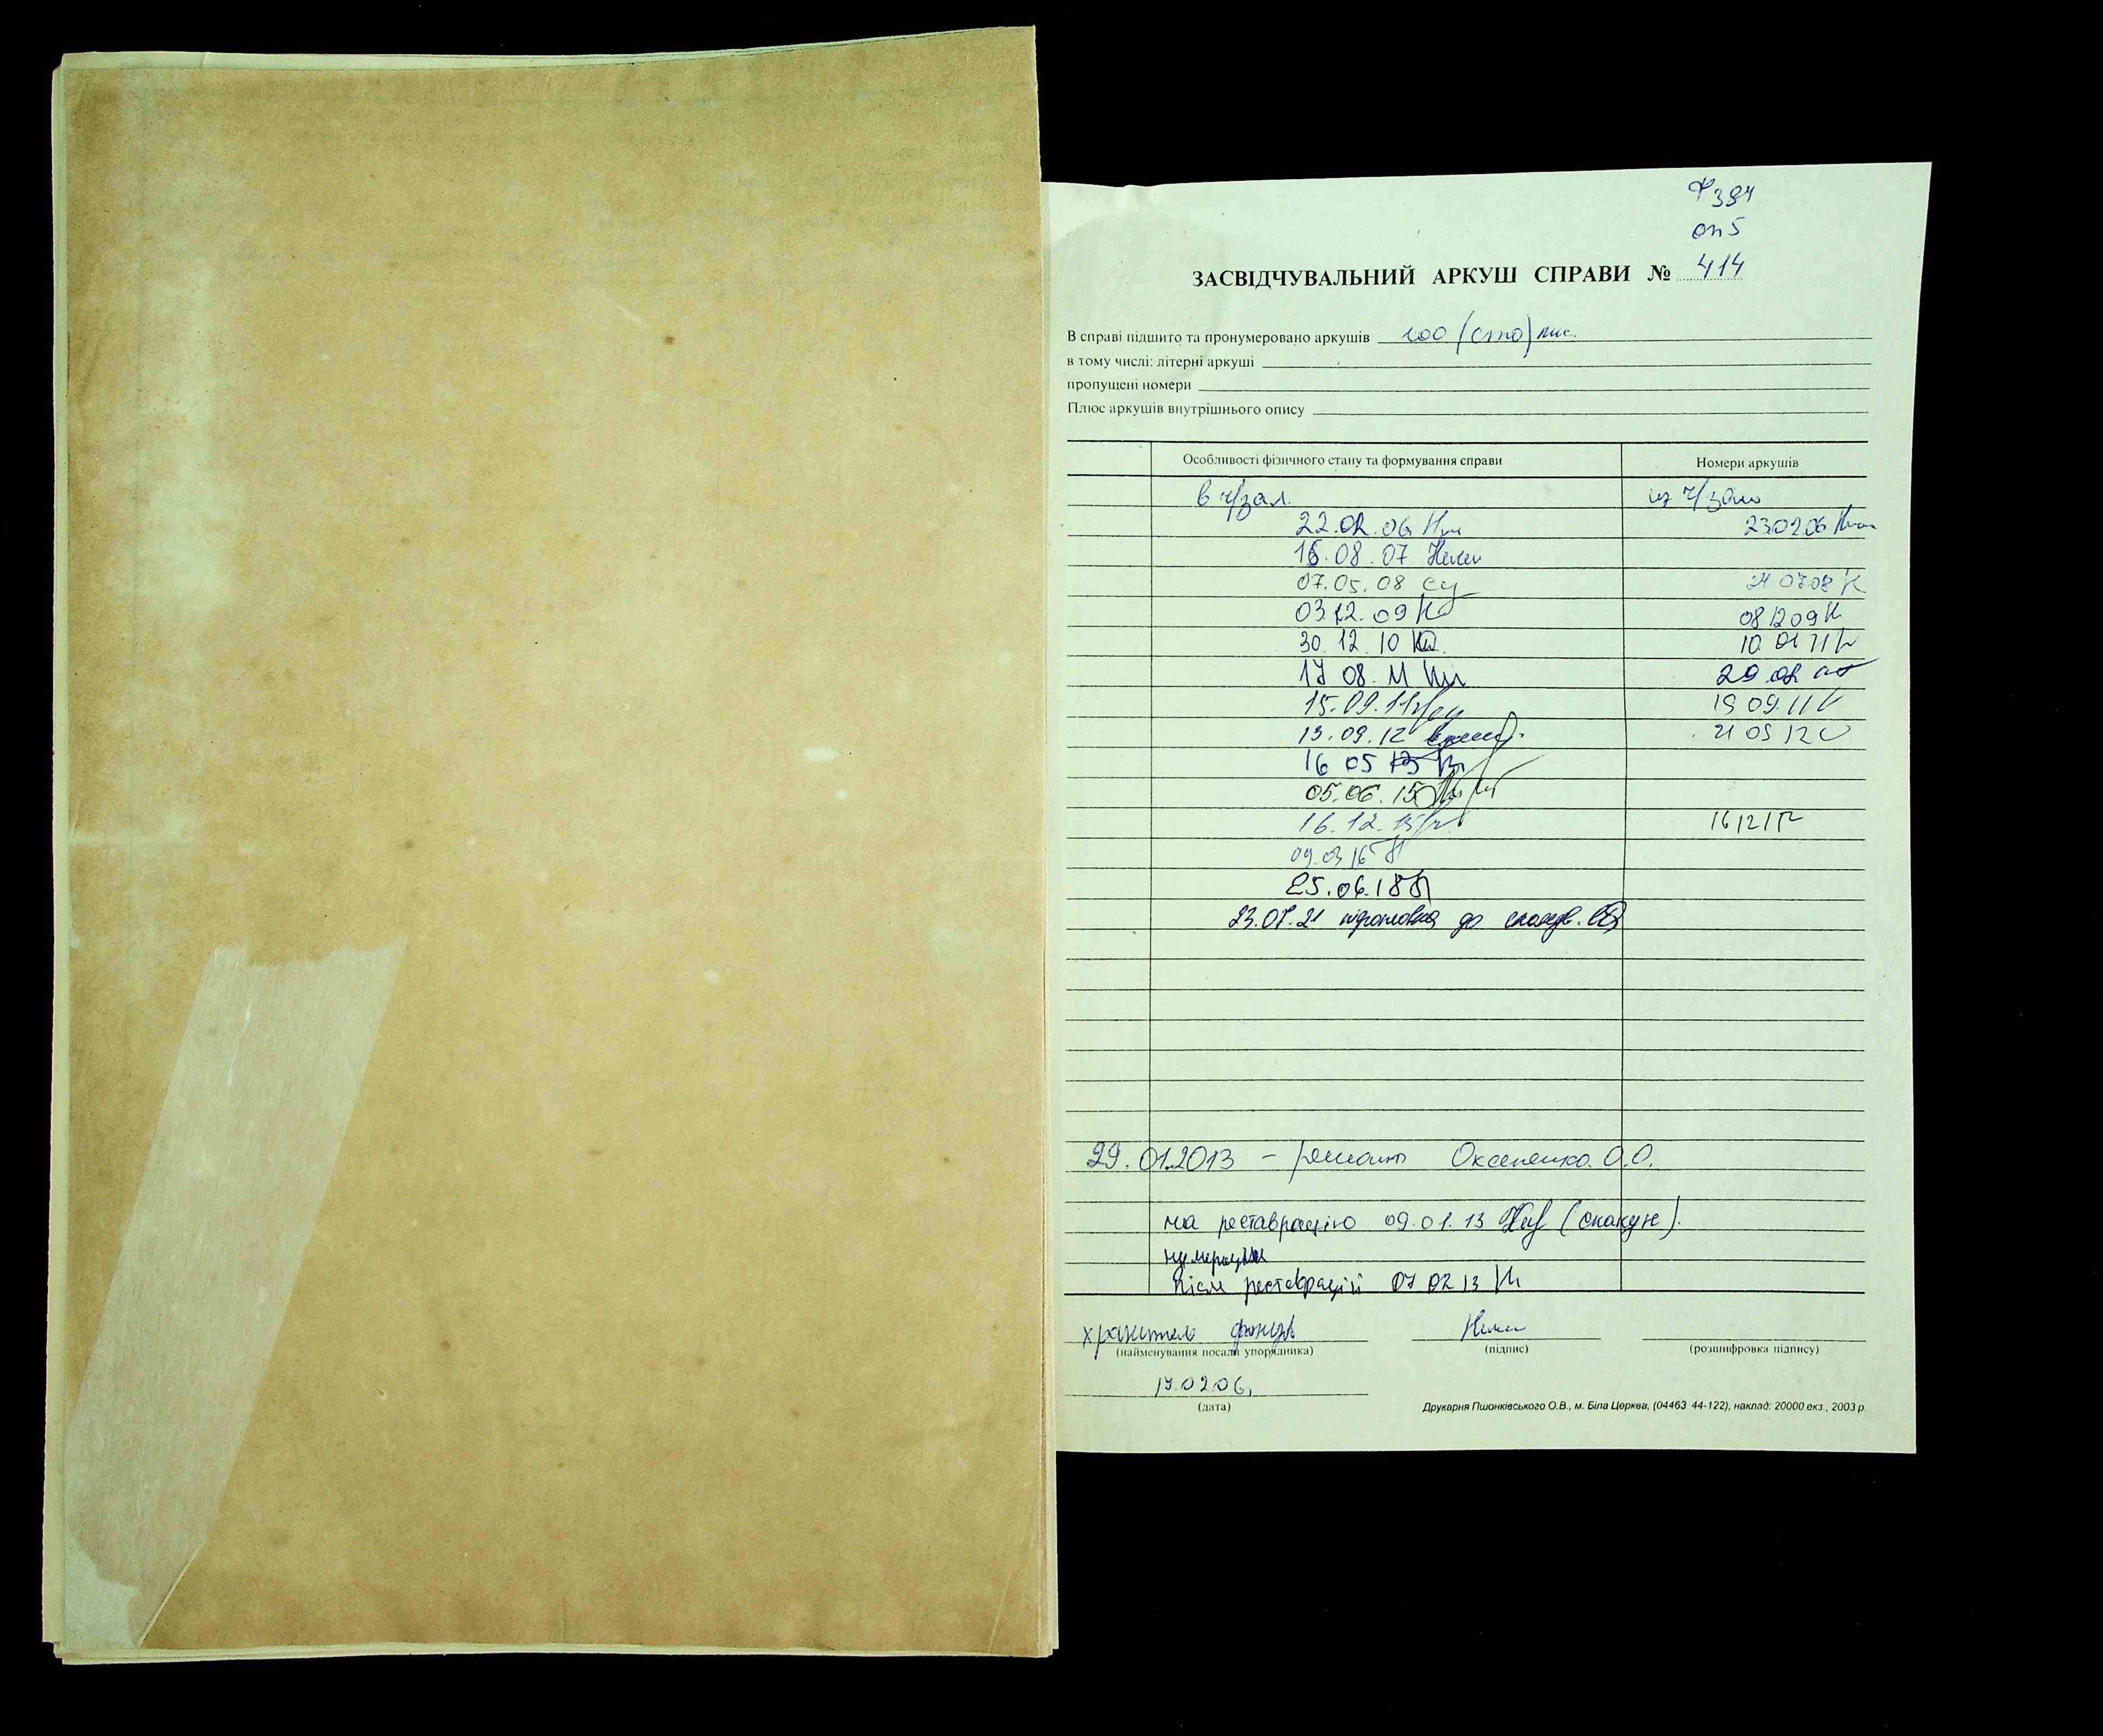 Ф 384
оп 5
ЗАСВІДЧУВАЛЬНИЙ АРКУШ СПРАВИ № 414
В справі підшито та пронумеровано аркушів 100 (сто)
в тому числі: літерні аркуші
пропущені номери
Плюс аркушів внутрішнього опису
Особливості фізичного стану та формування справи Номери аркушів
в ч/зал. из ч/зала
22.02.06 23.02.06
16.08.07
07.05.08
03.12.09 08 12 09
30.12.10 10 01 11
17 08. 11 29.08
15.09.11 19 09 11
13.09.12
16 05 13
05.06.15
16.12.15 16 12 15
09.03 16
25.06.18
23.07.21 підготовка до
29.01.2013 – ремонт Оксененко О.О.
на реставрацію 09.01.13
нумерация
після реставрації 07 02 13
хранитель фондів
(найменування посади упорядника) (підпис) (розшифровка підпису)
17.02.06,
(дата)
Друкарня Пшонківського О.В., м. Біла Церква, (04463 44-122), наклад: 20000 екз., 2003 р.